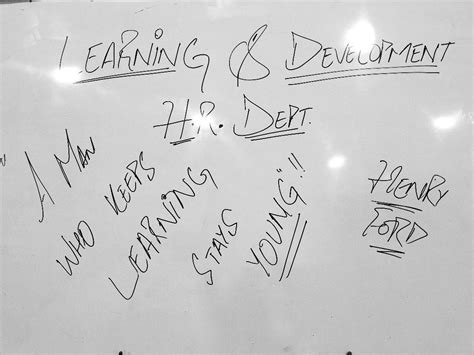 LEARNING & DEVELOPMENT
H.R. DEPT.
" A MAN
WHO KEEPS
LEARNING
STAYS
YOUNG"!!
HENRY
FORD